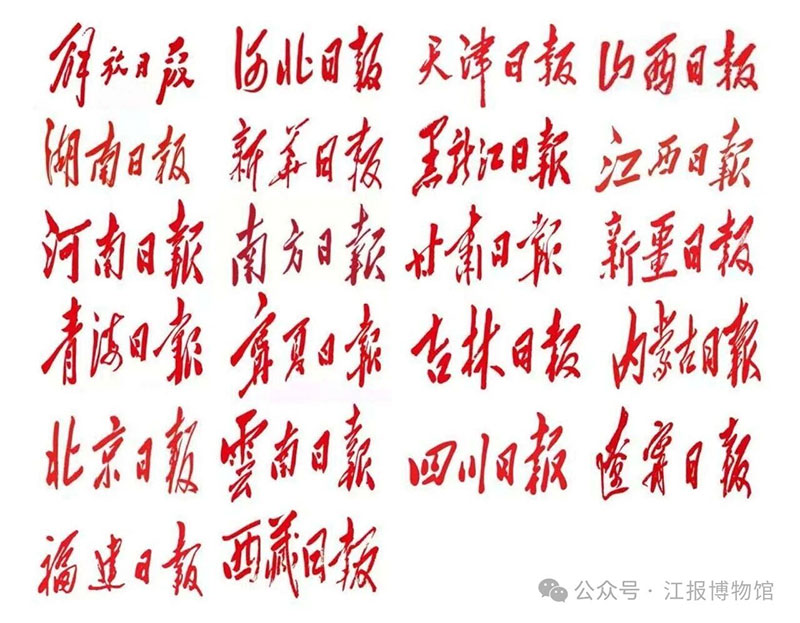 解放日报 河北日报 天津日报 山西日报
湖南日报 新华日报 黑龙江日報 江西日報
河南日報 南方日報 甘肃日報 新疆日报
青海日報 宁夏日報 吉林日报 内蒙古日報
北京日报 雲南日報 四川日报 遼寧日报
福建日报 西藏日报
公众号·江报博物馆